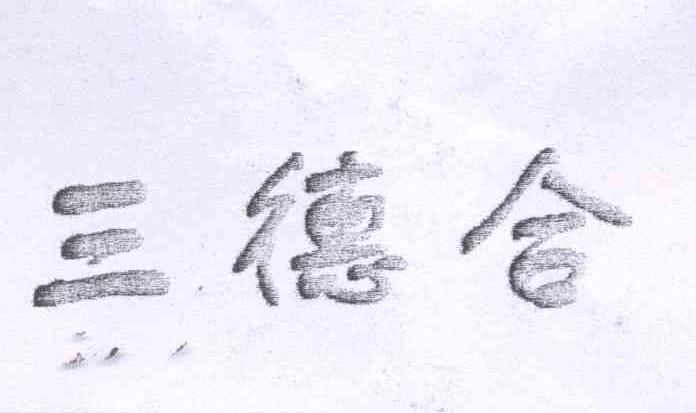 三德合